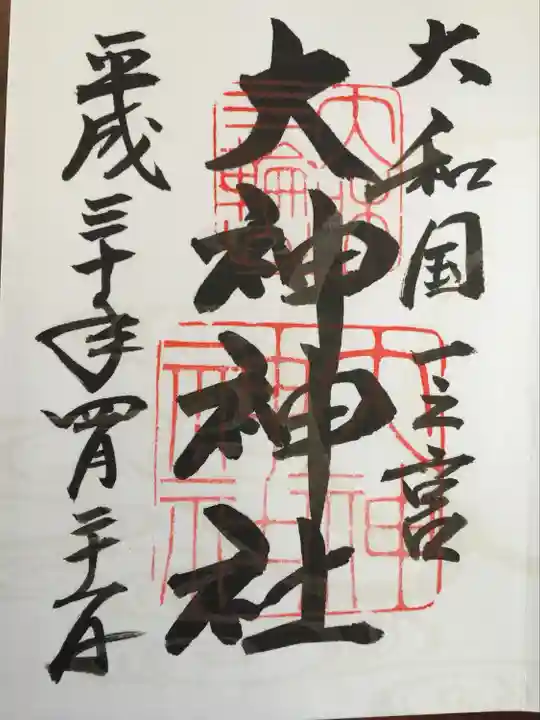 大和国一之宮
大神神社
平成三十年四月二十一日